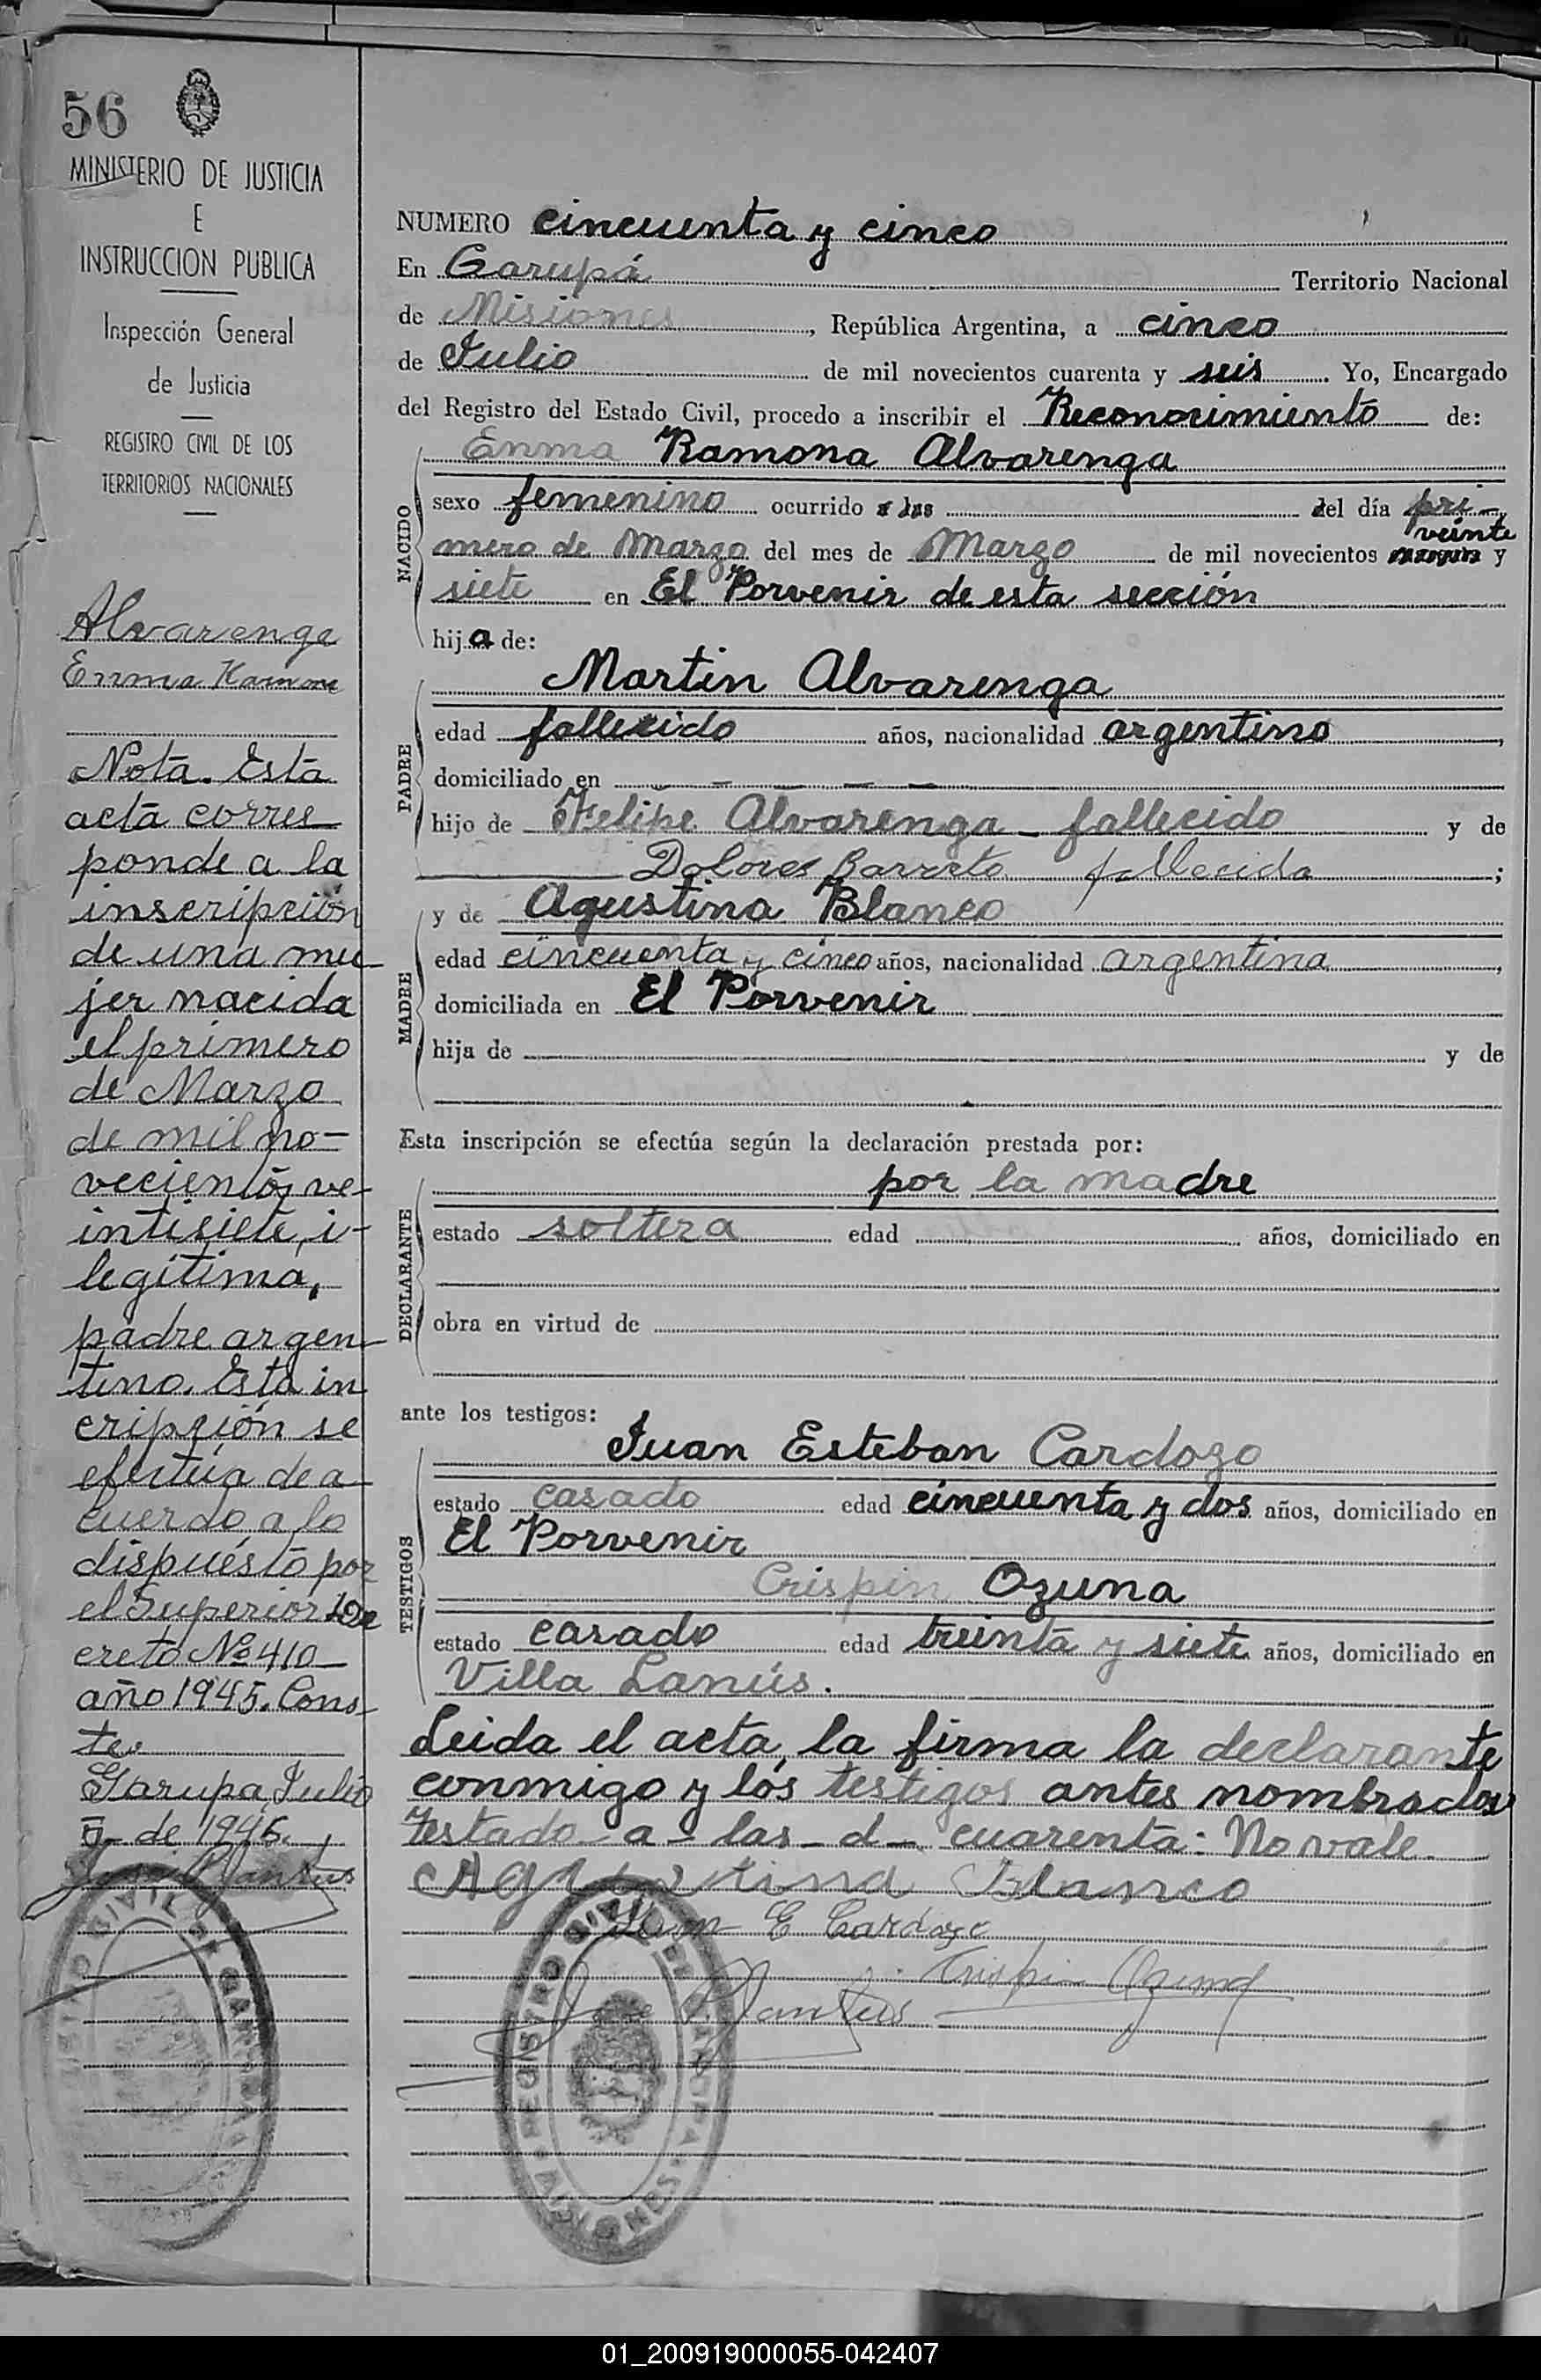 56
MINISTERIO DE JUSTICIA
E
INSTRUCCION PUBLICA
Inspección General
de Justicia
REGISTRO CIVIL DE LOS
TERRITORIOS NACIONALES
Alvarenga
Enma Ramona
Nota. Esta
acta corres
ponde a la
inscripción
de una mu
jer nacida
el primero
de Marzo
de mil no-
vecientos ve-
intisiete, i-
legitima,
padre argen
tino. Esta in
cripción se
efectúa de a
cuerdo a lo
dispuesto por
el Superior De
creto Nº 410
año 1945. Cons
te.
Garupa, Julio
5 de 1946.
NUMERO cincuenta y cinco
En Garupá Territorio Nacional
de Misiones, República Argentina, a cinco
de Julio de mil novecientos cuarenta y seis. Yo, Encargado
del Registro del Estado Civil, procedo a inscribir el Reconocimiento de:
Enma Ramona Alvarenga
NACIDO
sexo femenino ocurrido a las del día pri-
veinte
mero de Marzo del mes de Marzo de mil novecientos y
siete en El Porvenir de esta sección
hija de:
Martin Alvarenga
PADRE
edad fallecido años, nacionalidad argentino,
domiciliado en - - -
hijo de Felipe Alvarenga - fallecido y de
Dolores Barreto fallecida;
y de Agustina Blanco
MADRE
edad cincuenta y cinco años, nacionalidad argentina,
domiciliada en El Porvenir
hija de y de
Esta inscripción se efectúa según la declaración prestada por:
por la madre
DECLARANTE
estado soltera edad años, domiciliado en
obra en virtud de
ante los testigos:
Juan Esteban Cardozo
TESTIGOS
estado casado edad cincuenta y dos años, domiciliado en
El Porvenir
Crispin Ozuna
estado casado edad treinta y siete años, domiciliado en
Villa Lanús.
Leida el acta, la firma la declarante
conmigo y los testigos antes nombrados
Testado - a - las - d - cuarenta: No vale.
Agustina Blanco
Juan E Cardozo
Crispin Ozuna
REGISTRO CIVIL DE GARUPA
MISIONES
01_200919000055-042407